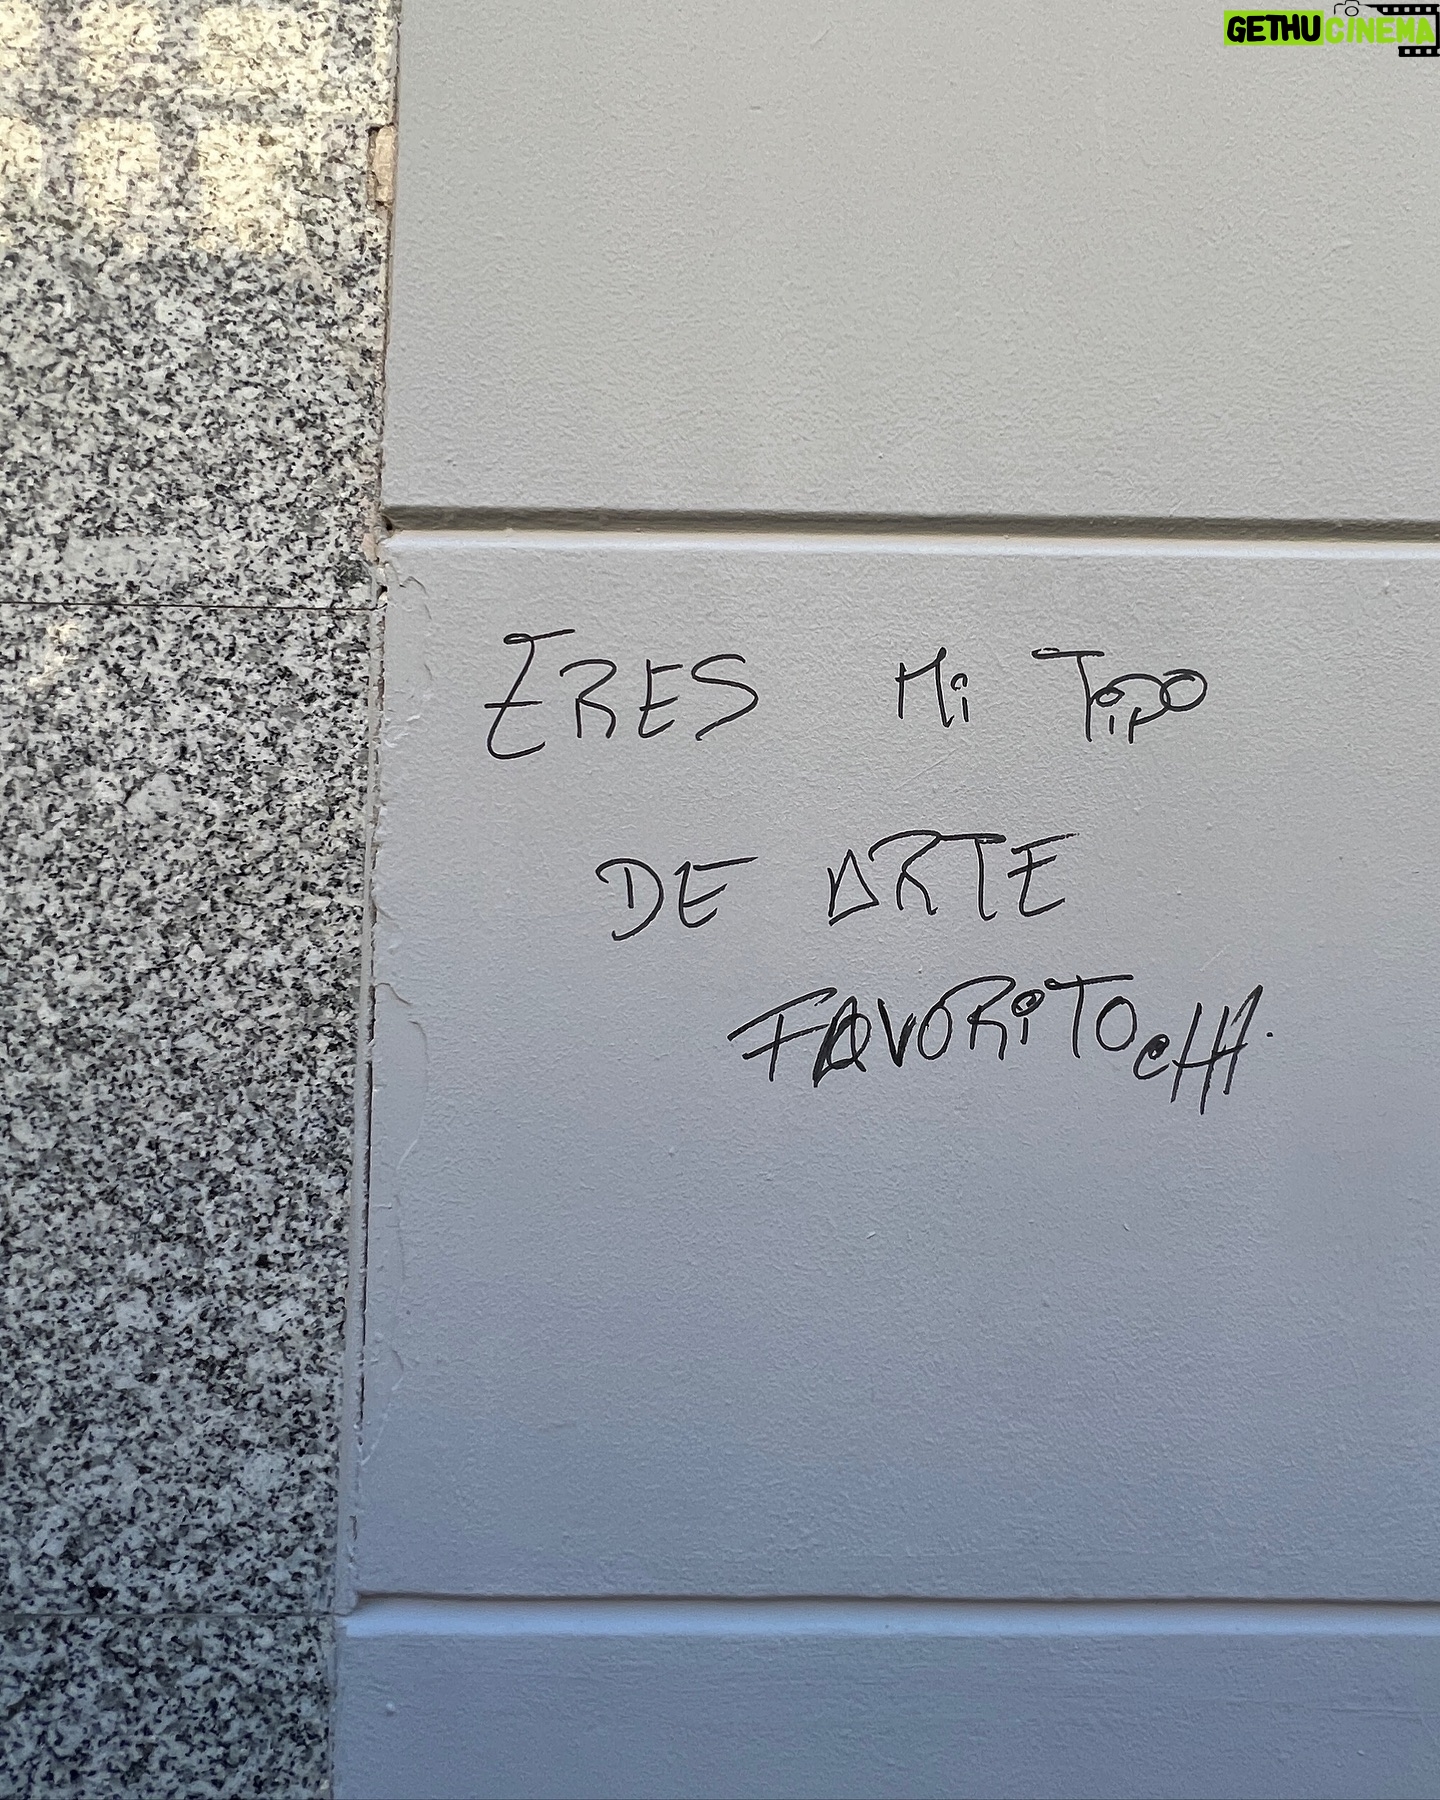 GETHUCINEMA
ERES Mi TipO
DE ARTE
FAVORiTO